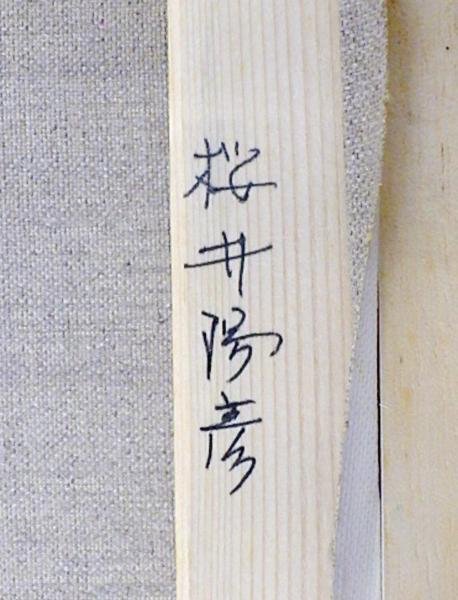 桜井陽彦